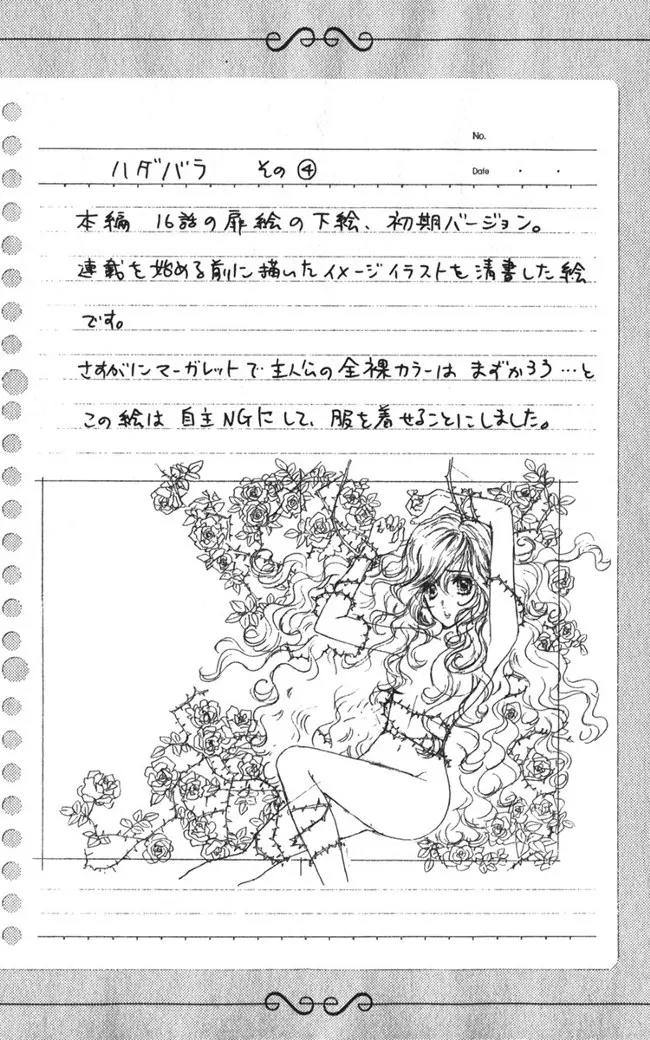 No.
ハダバラ その④
Date
本編 16話の扉絵の下絵、初期バージョン。
連載を始める前に描いたイメージイラストを清書した絵
です。
さすがにマーガレットで主人公の全裸カラーは まずかろう…と
この絵は 自主NGにして、服を着せることにしました。